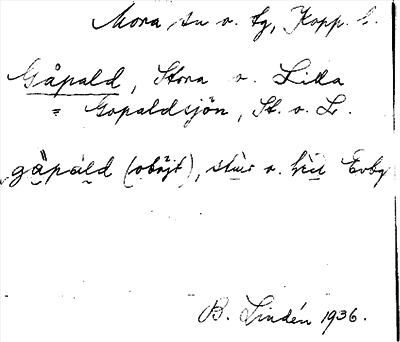 Mora sn o. tg, Kopp. l.
Gåpald, Stora o. Lilla
= Gopaldsjön, St. o. L.
gåpald (oböjt), stur o.
B. Lindén 1936.